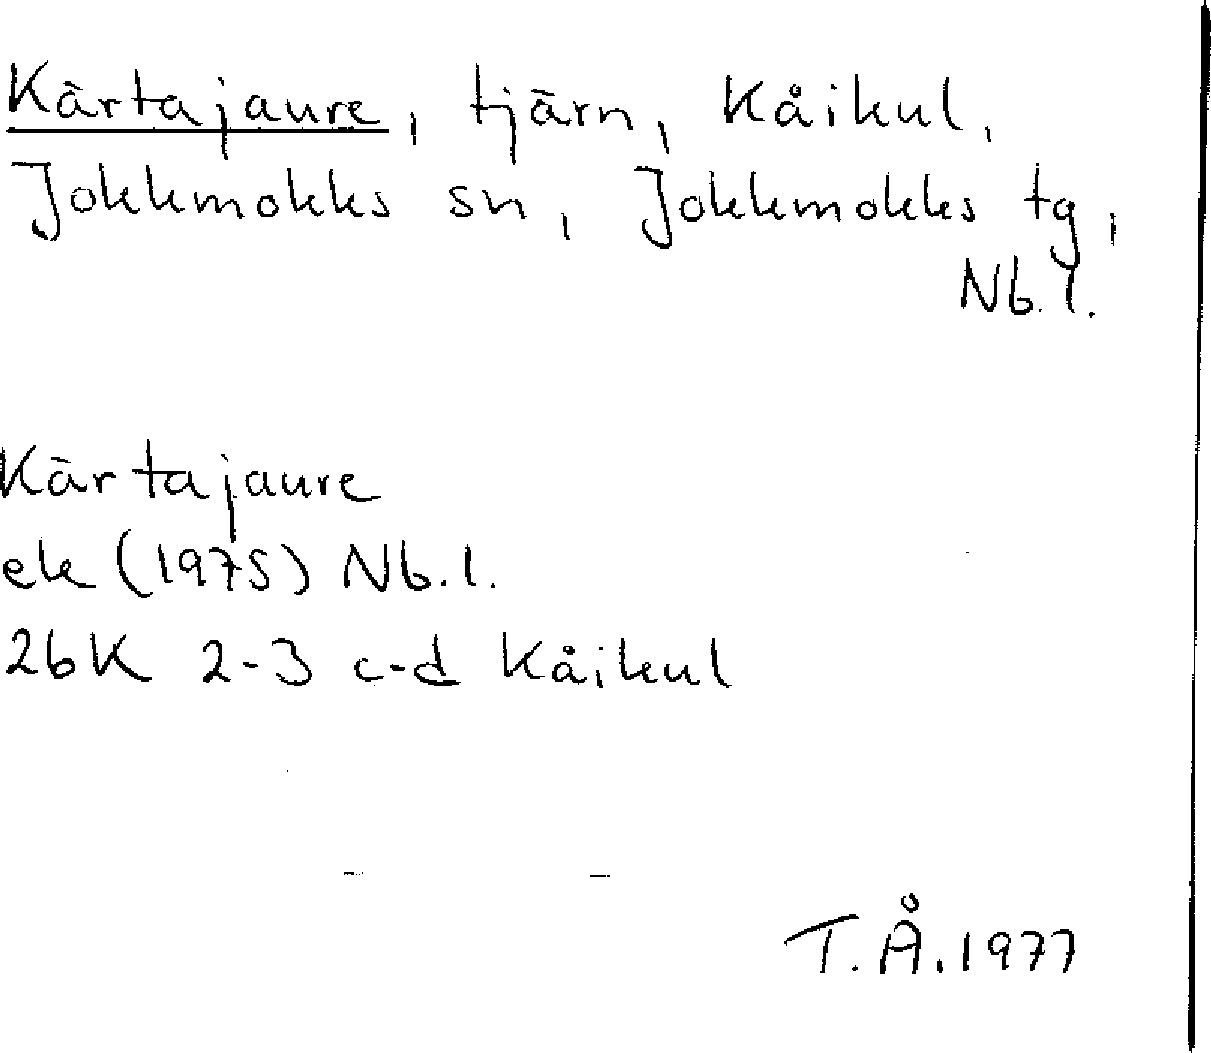 Kärtajaure, tjärn, Kåikul,
Jokkmokks sn, Jokkmokks tg,
Nb.l.
Kärtajaure
ek (1975) Nb.l.
26K 2-3 c-d Kåikul
T.Å.1977